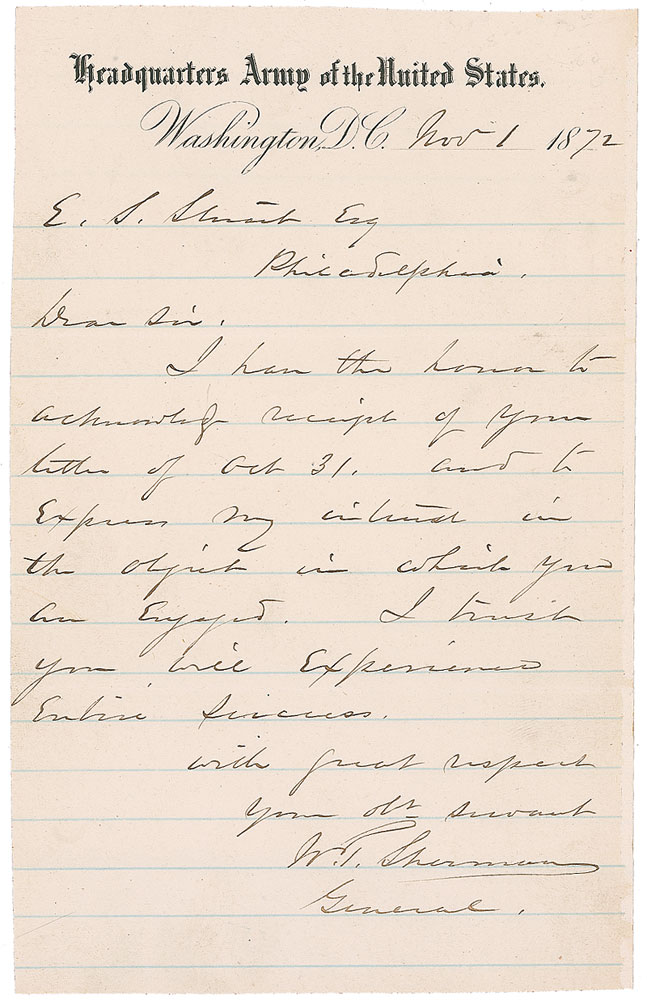 Headquarters Army of the United States.
Washington, D.C. Nov 1 1872
E. S. Stuart Esq
Philadelphia.
Dear Sir.
I have the honor to
acknowledge receipt of your
letter of Oct 31. and to
Express my interest in
the object in which you
are Engaged. I trust
you will Experience
Entire Success.
with great respect
your obt servant
W. T. Sherman
General.